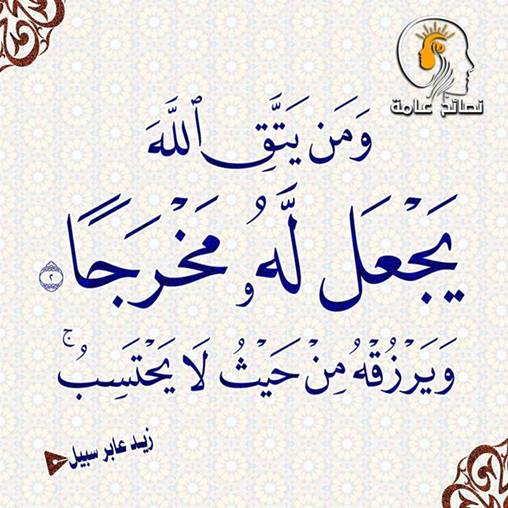 نصائح عامة
وَمَن يَتَّقِ ٱللَّهَ
يَجْعَل لَّهُۥ مَخْرَجًا ٢
وَيَرْزُقْهُ مِنْ حَيْثُ لَا يَحْتَسِبُ ۚ
زيد عابر سبيل